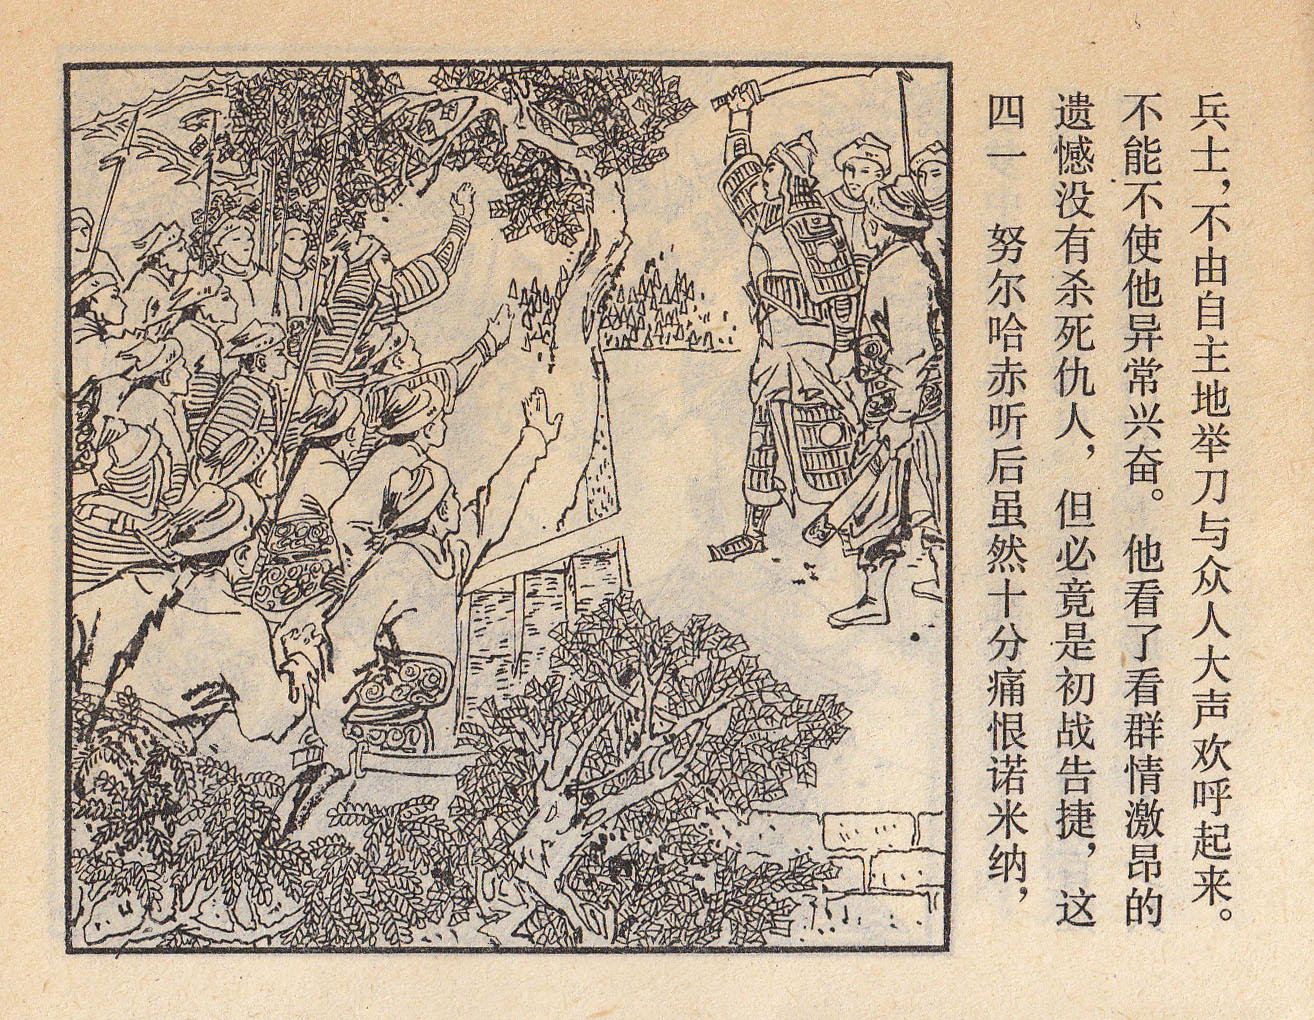 四一 努尔哈赤听后虽然十分痛恨诺米纳，
遗憾没有杀死仇人，但必竟是初战告捷，这
不能不使他异常兴奋。他看了看群情激昂的
兵士，不由自主地举刀与众人大声欢呼起来。